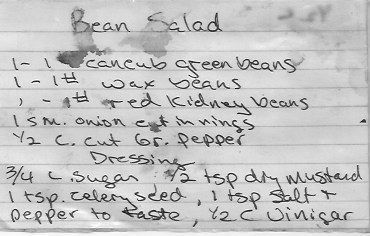 Bean Salad
1 - 1 can cub green beans
1 - 1# wax beans
1 - 1# red Kidney beans
1 sm. onion cut in rings
1/2 c. cut Gr. Pepper
Dressing
3/4 c. sugar 1/2 tsp dry mustard
1 tsp. celery seed, 1 tsp salt +
pepper to taste, 1/2 C Vinigar